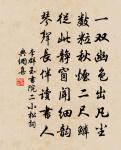 一双幽色出凡尘
数粒秋烟二尺鳞
从此静窗闻细韵
琴声长伴读书人
李群玉书院二小松词
典润奚